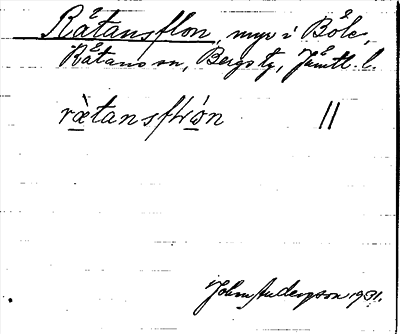 Råtansflon, myr i Böle,
Råtans sn, Bergs tg, Jämtl. l.
ràtansfłón //
John Anderson 1931.